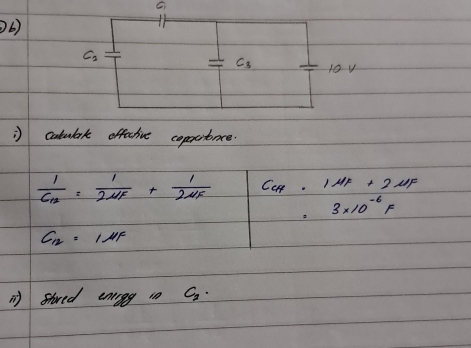 b)
C₁
C₂
C₃
10 V
i) Calculate effective capacitance.
1/C₁₂ = 1/2μF + 1/2μF
C₁₂ = 1μF
Ceff = 1μF + 2μF
= 3×10⁻⁶ F
ii) Stored energy in C₂.